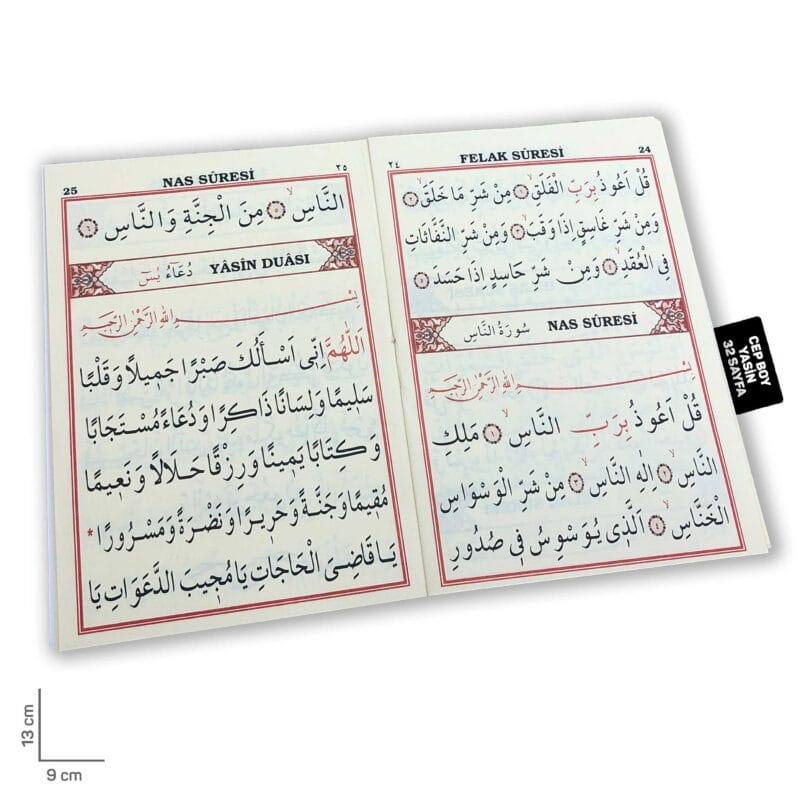 FELAK SÛRESİ ٢٤ 24
قُلْ اَعُوذُ بِرَبِّ الْفَلَقِۙ ﴿١﴾ مِنْ شَرِّ مَا خَلَقَۙ ﴿٢﴾
وَمِنْ شَرِّ غَاسِقٍ اِذَا وَقَبَۙ ﴿٣﴾ وَمِنْ شَرِّ النَّفَّاثَاتِ
فِى الْعُقَدِۙ ﴿٤﴾ وَمِنْ شَرِّ حَاسِدٍ اِذَا حَسَدَ ﴿٥﴾
سُورَةُ النَّاسِ NAS SÛRESİ
بِسْمِ اللهِ الرَّحْمٰنِ الرَّحِيمِ
قُلْ اَعُوذُ بِرَبِّ النَّاسِۙ ﴿١﴾ مَلِكِ
النَّاسِۙ ﴿٢﴾ اِلٰهِ النَّاسِۙ ﴿٣﴾ مِنْ شَرِّ الْوَسْوَاسِ
الْخَنَّاسِۙ ﴿٤﴾ اَلَّذِى يُوَسْوِسُ فِى صُدُورِ
25 NAS SÛRESİ ٢٥
النَّاسِۙ ﴿٥﴾ مِنَ الْجِنَّةِ وَالنَّاسِ ﴿٦﴾
دُعَاءُ يٰسٓ YÂSİN DUÂSI
بِسْمِ اللهِ الرَّحْمٰنِ الرَّحِيمِ
اَللّٰهُمَّ اِنِّى اَسْأَلُكَ صَبْرًا جَمِيلًا وَقَلْبًا
سَلِيمًا وَلِسَانًا ذَاكِرًا وَدُعَاءً مُسْتَجَابًا
وَكِتَابًا يَمِينًا وَرِزْقًا حَلَالًا وَنَعِيمًا
مُقِيمًا وَجَنَّةً وَحَرِيرًا وَنَضْرَةً وَمَسْرُورًا *
يَا قَاضِىَ الْحَاجَاتِ يَا مُجِيبَ الدَّعَوَاتِ يَا
CEP BOY
YASİN
32 SAYFA
13 cm
9 cm